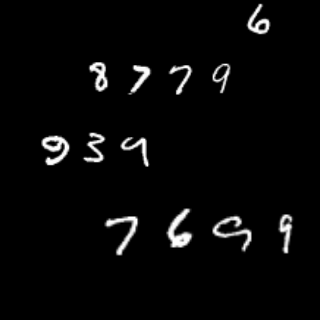 6
8779
939
7699